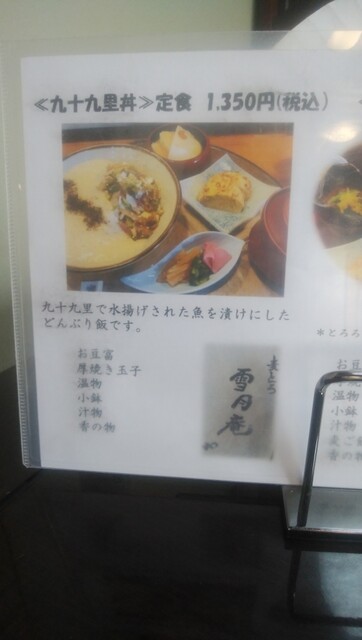 ≪九十九里丼≫定食 1,350円(税込)
九十九里で水揚げされた魚を漬けにした
どんぶり飯です。
お豆富
厚焼き玉子
温物
小鉢
汁物
香の物
麦とろ
雪月庵
※とろろ
お豆
温物
小鉢
汁物
麦ご
香の物